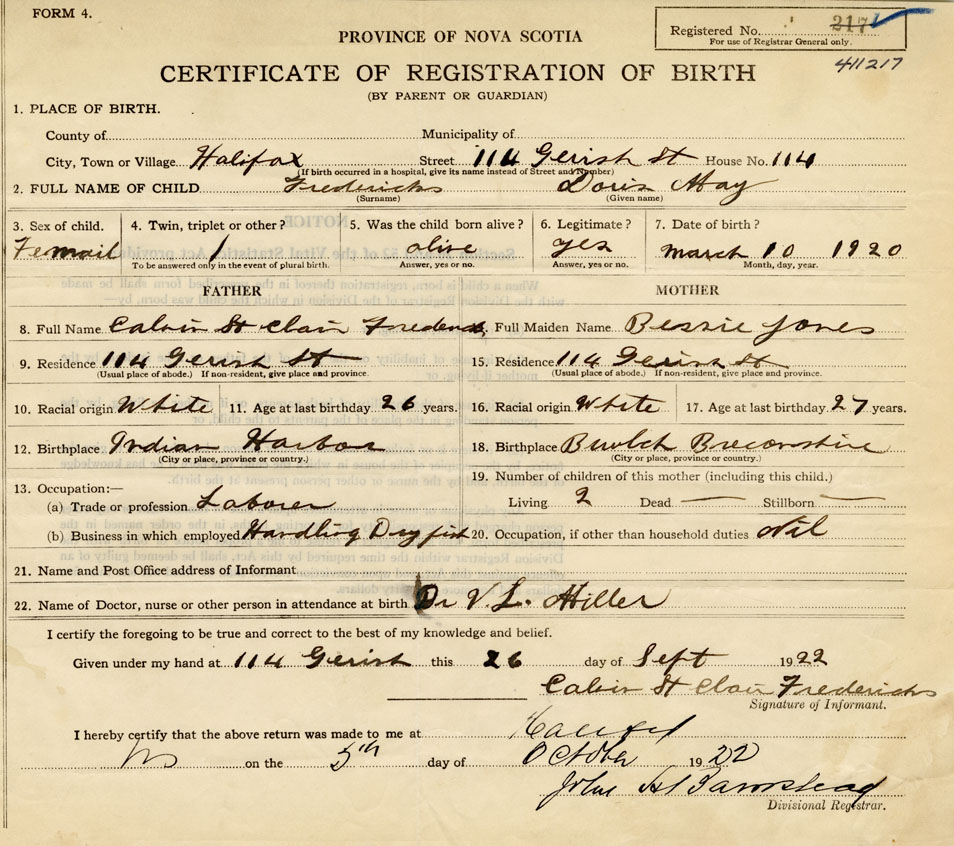 FORM 4.
Registered No. 217
For use of Registrar General only.
411217
PROVINCE OF NOVA SCOTIA
CERTIFICATE OF REGISTRATION OF BIRTH
(BY PARENT OR GUARDIAN)
1. PLACE OF BIRTH.
County of Municipality of
City, Town or Village Halifax Street 114 Gerish St House No. 114
(If birth occurred in a hospital, give its name instead of Street and Number)
2. FULL NAME OF CHILD Fredericks Doris May
(Surname) (Given name)
3. Sex of child. 4. Twin, triplet or other? 5. Was the child born alive? 6. Legitimate? 7. Date of birth?
Femail / alive yes march 10 1920
To be answered only in the event of plural birth. Answer, yes or no. Answer, yes or no. Month, day, year.
FATHER MOTHER
8. Full Name Calvin St Clair Fredericks Full Maiden Name Bessie Jones
9. Residence 114 Gerish St 15. Residence 114 Gerish St
(Usual place of abode.) If non-resident, give place and province. (Usual place of abode.) If non-resident, give place and province.
10. Racial origin White 11. Age at last birthday 26 years. 16. Racial origin White 17. Age at last birthday 27 years.
12. Birthplace Indian Harbor 18. Birthplace Bwlch Breconshire
(City or place, province or country.) (City or place, province or country.)
19. Number of children of this mother (including this child.)
13. Occupation:—
(a) Trade or profession Laborer Living 2 Dead — Stillborn —
(b) Business in which employed Handling Dry fish 20. Occupation, if other than household duties Nil
21. Name and Post Office address of Informant
22. Name of Doctor, nurse or other person in attendance at birth Dr V. L. Miller
I certify the foregoing to be true and correct to the best of my knowledge and belief.
Given under my hand at 114 Gerish this 26 day of Sept 1922
Calvin St Clair Fredericks
Signature of Informant.
I hereby certify that the above return was made to me at Halifax
NS on the 5th day of October 1922
John H Barnstead
Divisional Registrar.